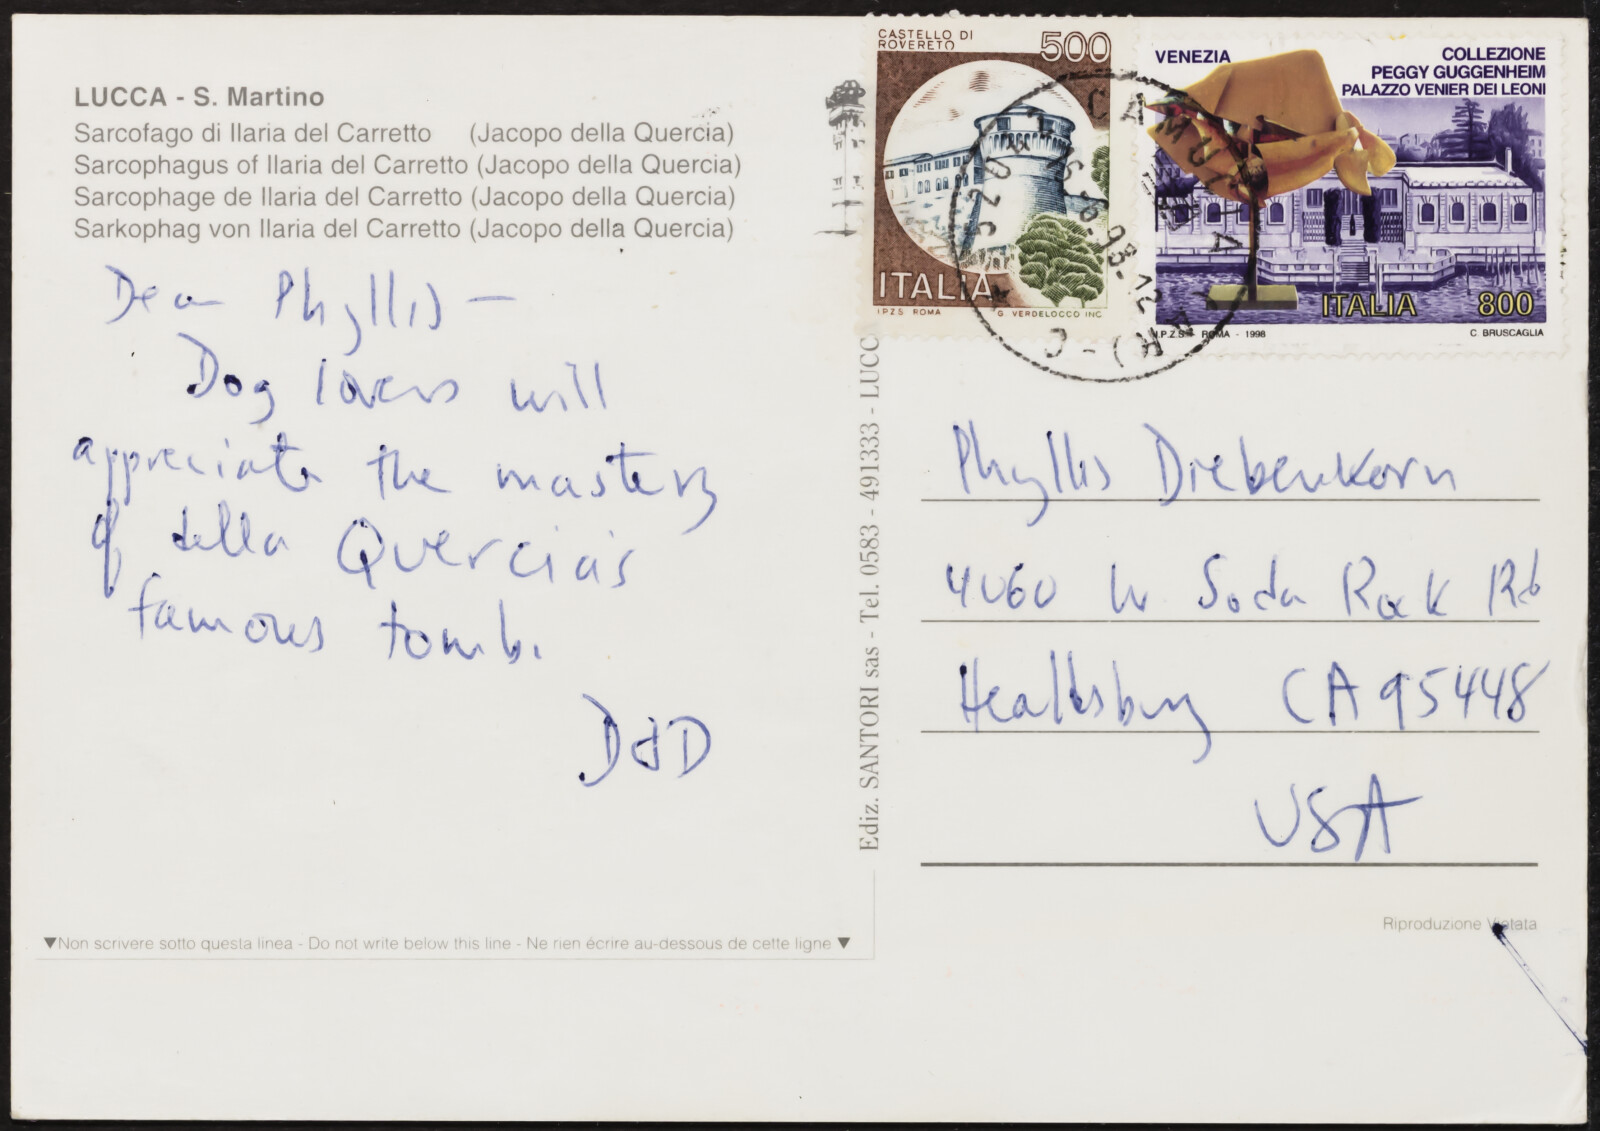 LUCCA - S. Martino
Sarcofago di Ilaria del Carretto (Jacopo della Quercia)
Sarcophagus of Ilaria del Carretto (Jacopo della Quercia)
Sarcophage de Ilaria del Carretto (Jacopo della Quercia)
Sarkophag von Ilaria del Carretto (Jacopo della Quercia)
Dear Phyllis -
Dog lovers will
appreciate the mastery
of della Quercia's
famous tomb.
DdD
Non scrivere sotto questa linea - Do not write below this line - Ne rien écrire au-dessous de cette ligne
Ediz. SANTORI sas - Tel. 0583 - 491333 - LUCC
CASTELLO DI
ROVERETO
500
ITALIA
I.P.Z.S. ROMA G. VERDELOCCO INC.
VENEZIA
COLLEZIONE
PEGGY GUGGENHEIM
PALAZZO VENIER DEI LEONI
ITALIA 800
I.P.Z.S. ROMA - 1998 C. BRUSCAGLIA
Phyllis Diebenkorn
4060 W Soda Rock Rd
Healdsburg CA 95448
USA
Riproduzione Vietata